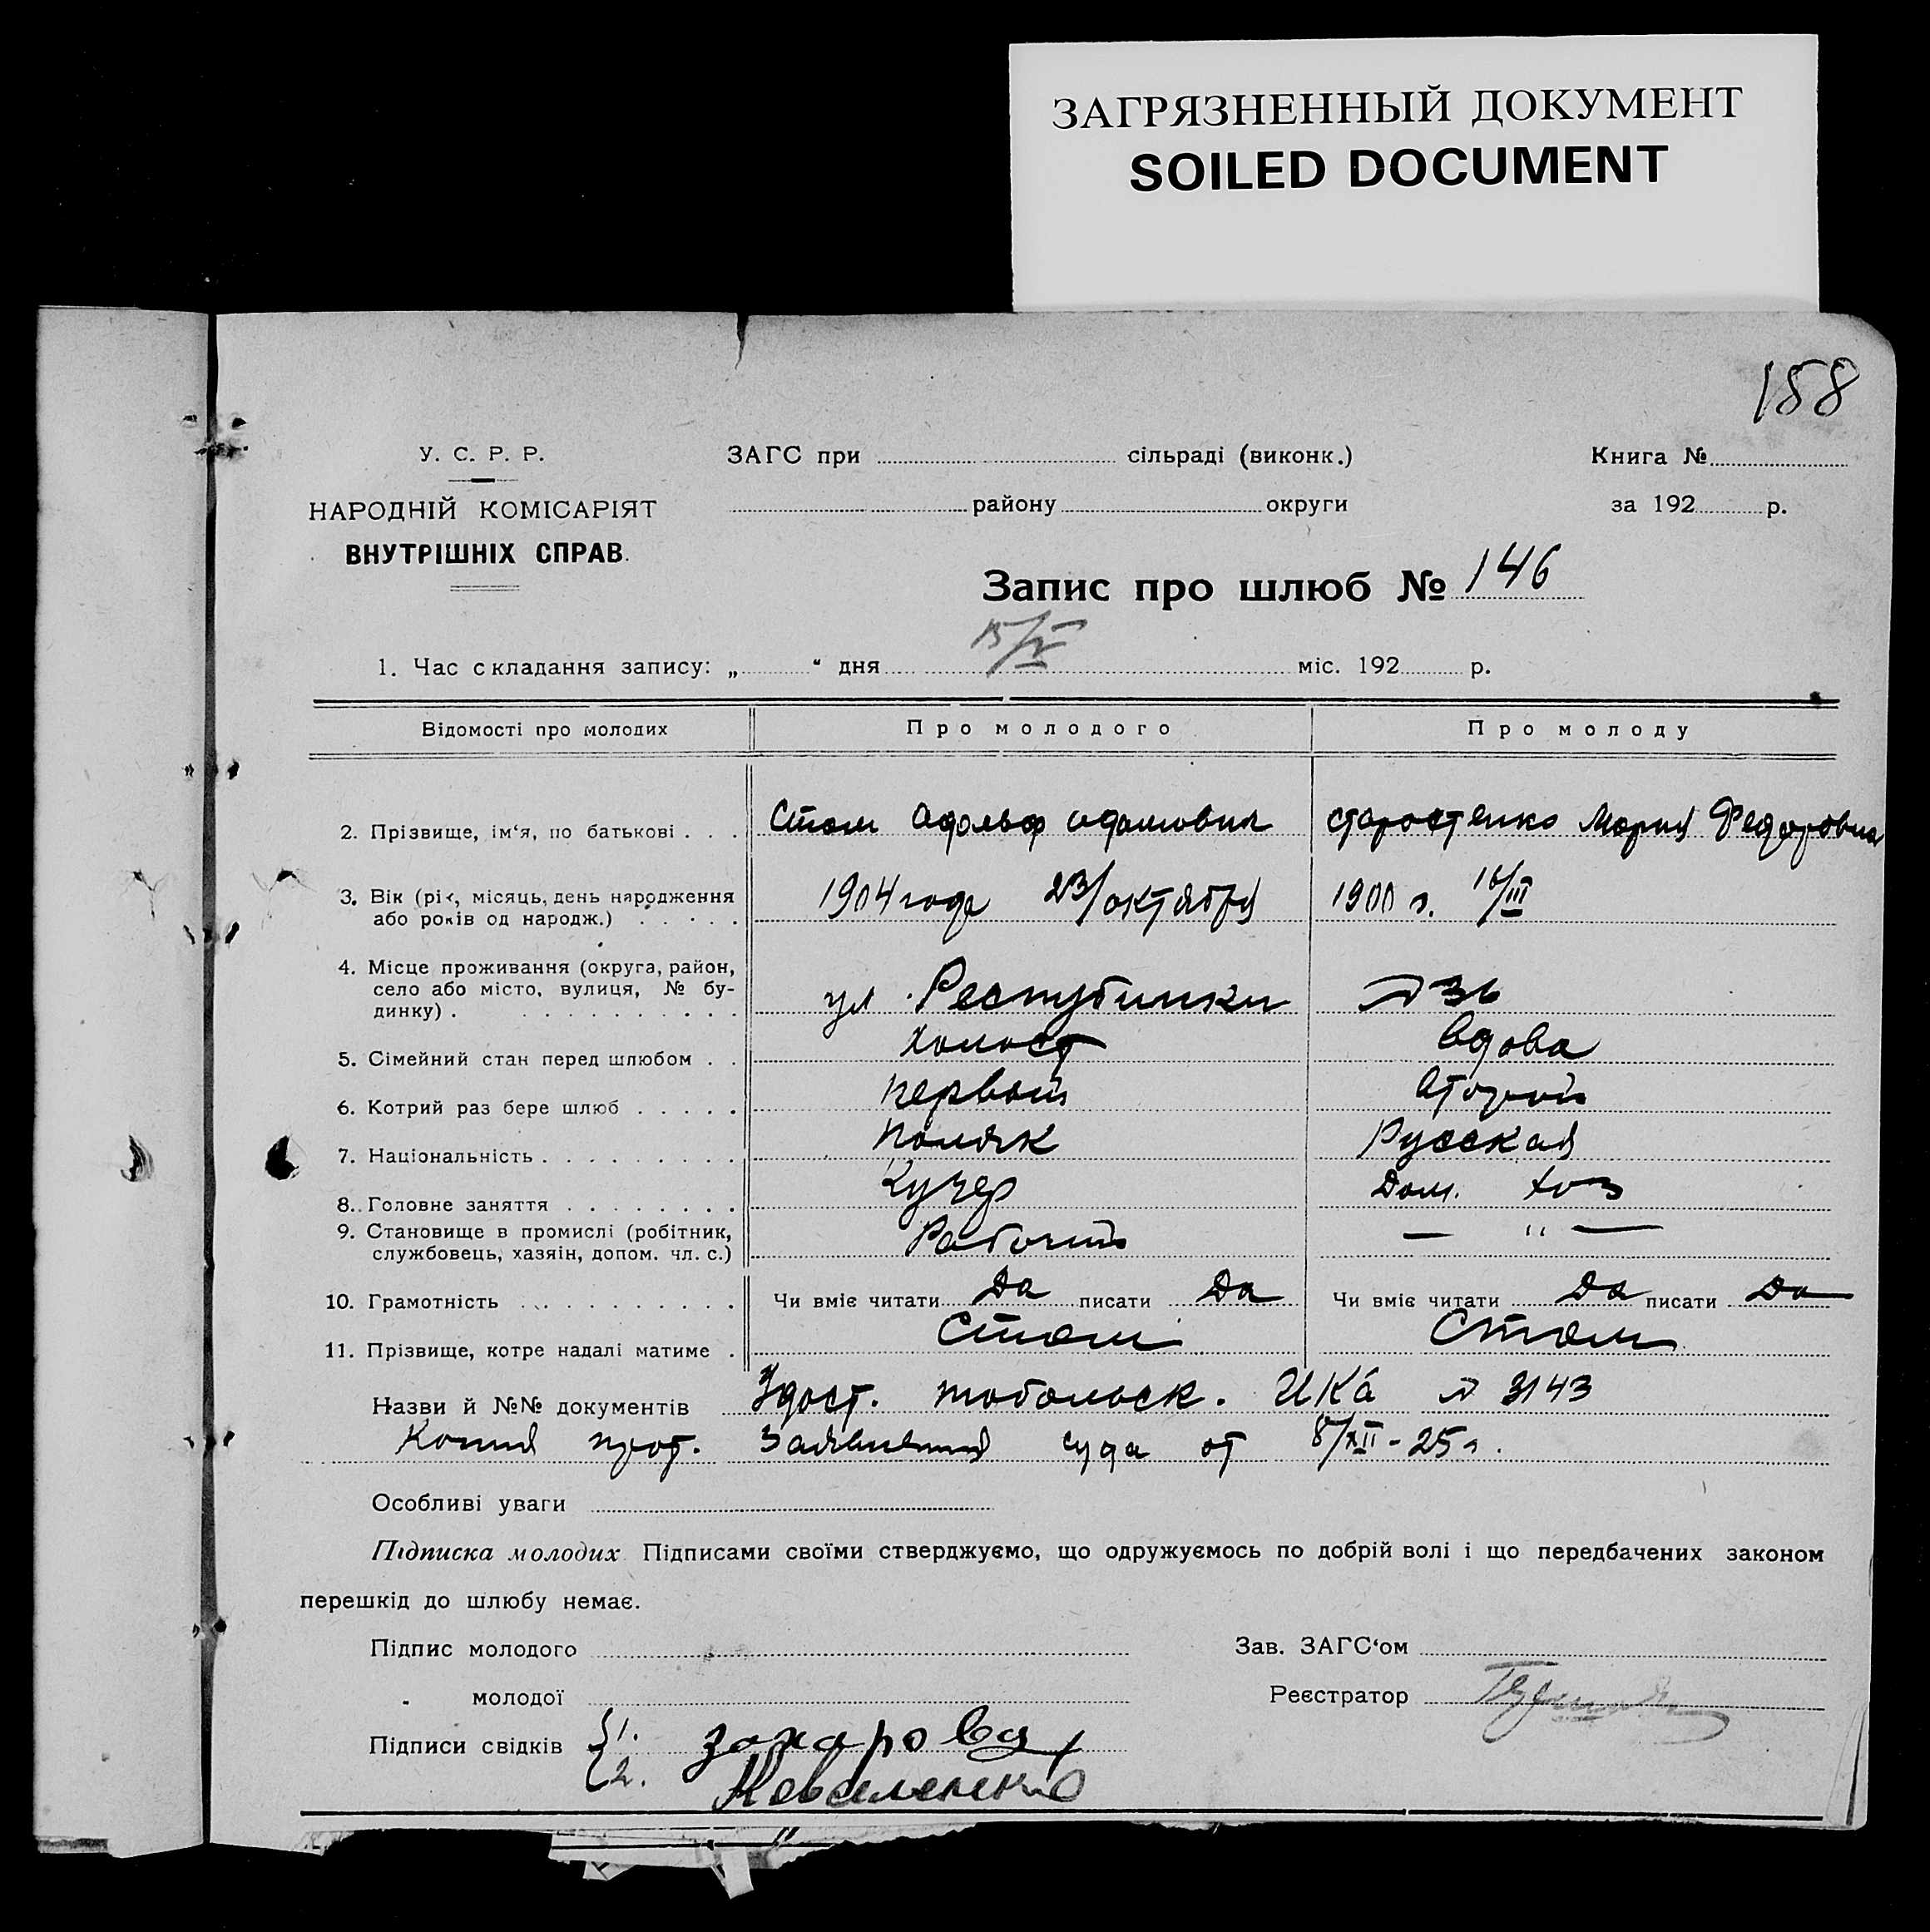 ЗАГРЯЗНЕННЫЙ ДОКУМЕНТ
SOILED DOCUMENT
188
У. С. Р. Р.
НАРОДНІЙ КОМІСАРІЯТ
ВНУТРІШНІХ СПРАВ.
ЗАГС при сільраді (виконк.)
району округи
Книга №
за 192 р.
Запис про шлюб № 146
1. Час складання запису: „ “ дня 15/V міс. 192 р.
Відомості про молодих Про молодого Про молоду
2. Прізвище, ім‘я, по батькові . . . Стам Адольф Адамович Старостенко Мария Федоровна
3. Вік (рік, місяць, день народження
або років од народж.) . . . . . 1904 года 23/октября 1900 г. 16/III
4. Місце проживання (округа, район,
село або місто, вулиця, № бу-
динку) . . . . . . . . . . . ул. Республики № 36
5. Сімейний стан перед шлюбом . . холост вдова
6. Котрий раз бере шлюб . . . . . первый второй
7. Національність . . . . . . . . . поляк Русская
8. Головне заняття . . . . . . . . Кучер Дом. хоз
9. Становище в промислі (робітник,
службовець, хазяін, допом. чл. с.) Рабочий — " —
10. Грамотність . . . . . . . . . . Чи вміє читати Да писати Да Чи вміє читати Да писати Да
11. Прізвище, котре надалі матиме . Стам Стам
Назви й №№ документів Удост. тобольск. ИКа № 3143
Копия прот. суда от 8/XII-25 г.
Особливі уваги
Підписка молодих Підписами своїми стверджуємо, що одружуємось по добрій волі і що передбачених законом
перешкід до шлюбу немає.
Підпис молодого Зав. ЗАГС‘ом
„ молодої Реєстратор
Підписи свідків 1. Захарова
2. Коваленко